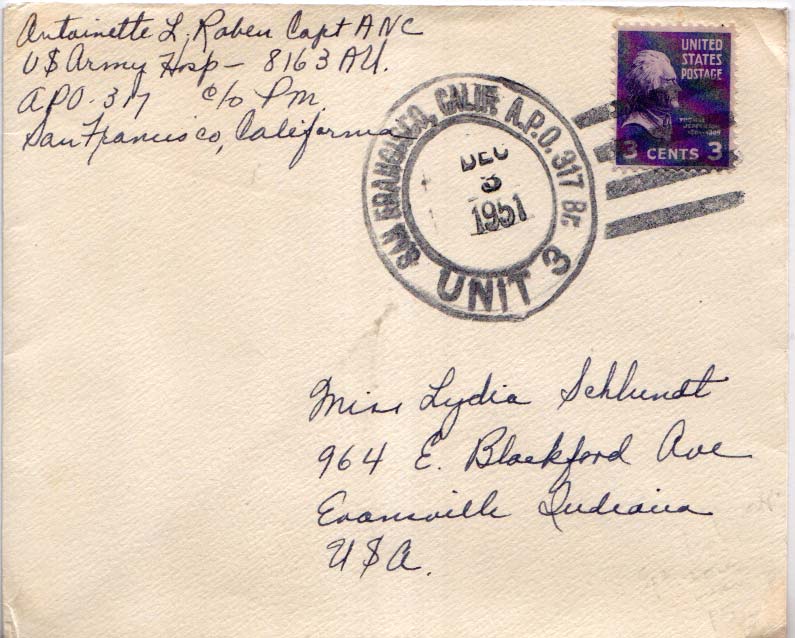 Antoinette L. Raben Capt ANC
US Army Hosp - 8163 AU.
APO. 317 c/o P.M.
San Francisco, California
SAN FRANCISCO, CALIF. A.P.O. 317 BR.
DEC
3
1951
UNIT 3
UNITED
STATES
POSTAGE
THOMAS
JEFFERSON
3 CENTS 3
Miss Lydia Schlundt
964 E. Blackford Ave
Evansville Indiana
USA.